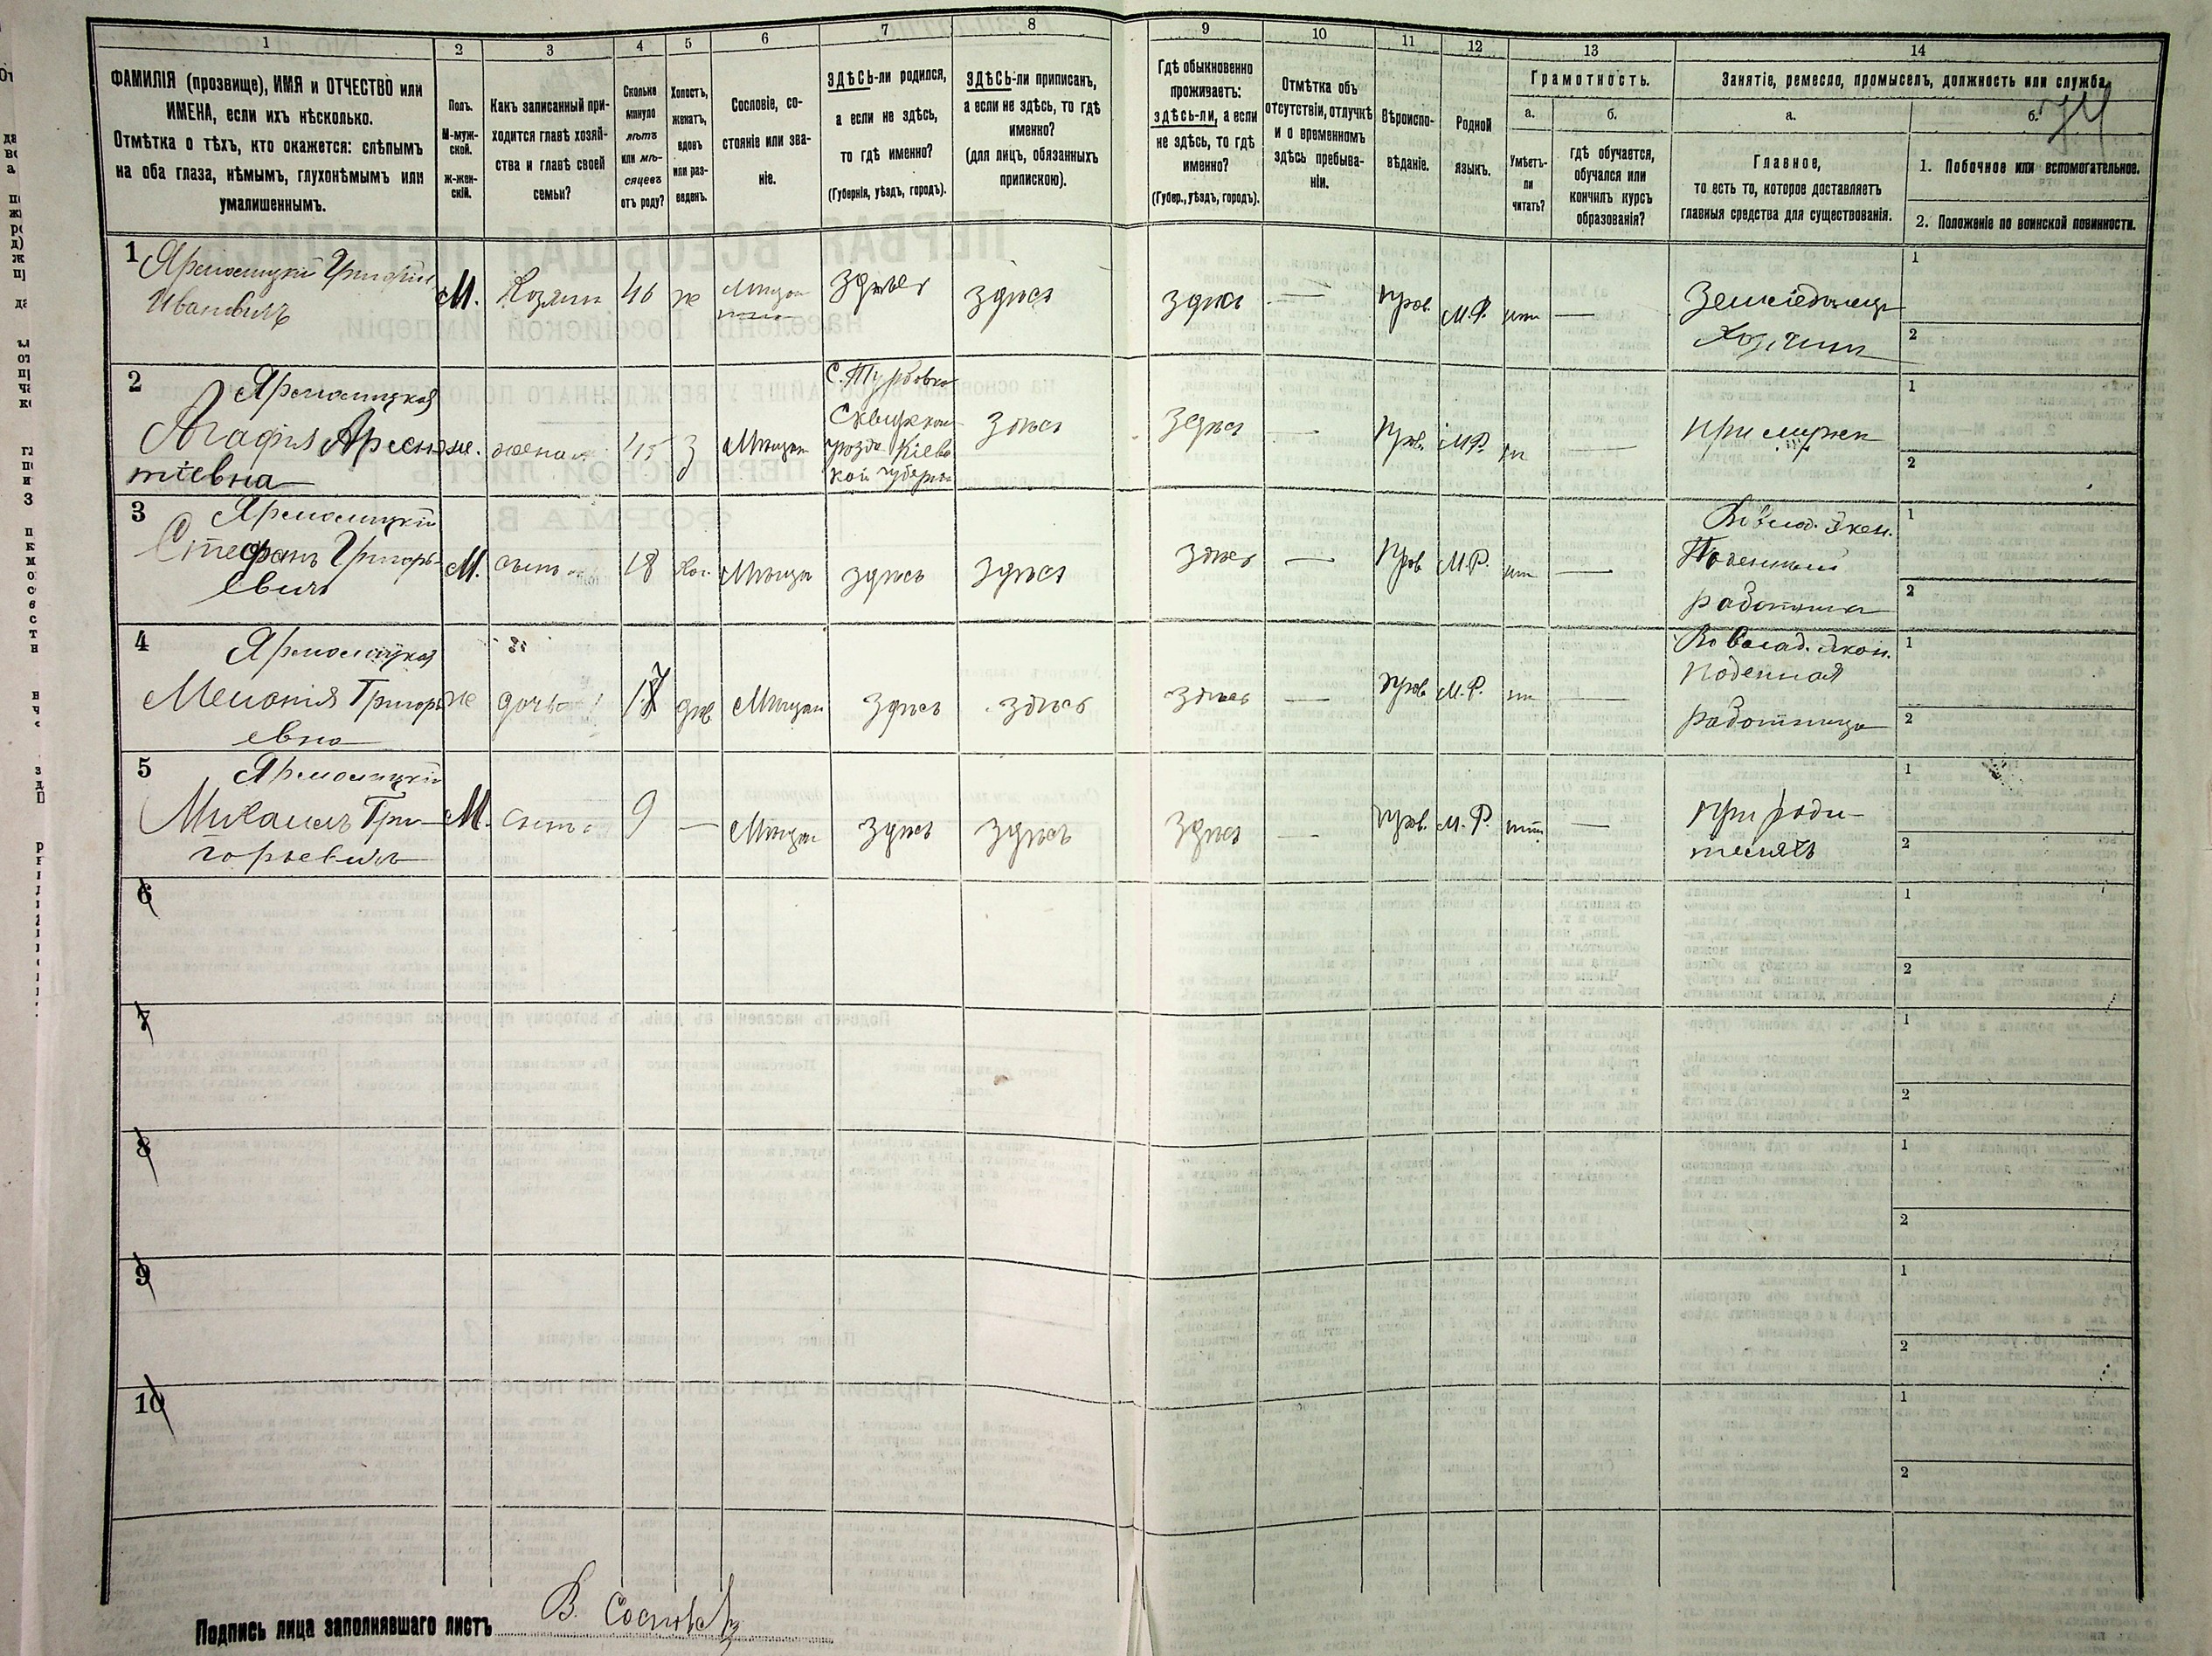 1 2 3 4 5 6 7 8 9 10 11 12 13 14
ФАМИЛІЯ (прозвище), ИМЯ и ОТЧЕСТВО или
ИМЕНА, если ихъ нѣсколько.
Отмѣтка о тѣхъ, кто окажется: слѣпымъ
на оба глаза, нѣмымъ, глухонѣмымъ или
умалишеннымъ.
Полъ.
М-муж-
ской.
ж-жен-
скій.
Какъ записанный при-
ходится главѣ хозяй-
ства и главѣ своей
семьи?
Сколько
минуло
лѣтъ
или мѣ-
сяцевъ
отъ роду?
Холостъ,
женатъ,
вдовъ
или раз-
веденъ.
Сословіе, со-
стояніе или зва-
ніе.
ЗДѢСЬ-ли родился,
а если не здѣсь,
то гдѣ именно?
(Губернія, уѣздъ, городъ).
ЗДѢСЬ-ли приписанъ,
а если не здѣсь, то гдѣ
именно?
(для лицъ, обязанныхъ
припискою).
Гдѣ обыкновенно
проживаетъ:
здѣсь-ли, а если
не здѣсь, то гдѣ
именно?
(Губер., уѣздъ, городъ).
Отмѣтка объ
отсутствіи, отлучкѣ
и о временномъ
здѣсь пребыва-
ніи.
Вѣроиспо-
вѣданіе.
Родной
языкъ.
Грамотность.
а.
Умѣетъ-
ли
читать?
б.
гдѣ обучается,
обучался или
кончилъ курсъ
образованія?
Занятіе, ремесло, промыселъ, должность или служба.
а.
Главное,
то есть то, которое доставляетъ
главныя средства для существованія.
б.
1. Побочное или вспомогательное.
2. Положеніе по воинской повинности.
1 Ярмолицкій Григорій
Ивановичъ
М. Хозяин 46 ж здѣсь здѣсь здѣсь — Прав. М.Р. — Хозяин
1
2
2 Ярмолицкая
Агафия Арсен
тіевна
же. жена 45 з Мѣщан
Сквирскаго
уѣзда Кіевс
кой губерніи
здѣсь здѣсь — Прав. М.Р. — При мужѣ
1
2
3 Ярмолицкій
Стефанъ Григорь-
евичъ
М. сынъ 18 Хол. Мѣщан здѣсь здѣсь здѣсь — Прав М.Р. —
Поденный
работник
1
2
4 Ярмолицкая
Мелания Григорь
евна
же дочь 17 дѣв Мѣщан здѣсь здѣсь здѣсь — Прав М.Р. —
Во влад. Экон.
Поденная
работница
1
2
5 Ярмолицкій
Михаилъ Гри-
горьевичъ
М. сынъ 9 — Мѣщан здѣсь здѣсь здѣсь — Прав. М.Р. —
При роди-
теляхъ
1
2
6
1
2
7
1
2
8
1
2
9
1
2
10
1
2
Подпись лица заполнявшаго листъ В.